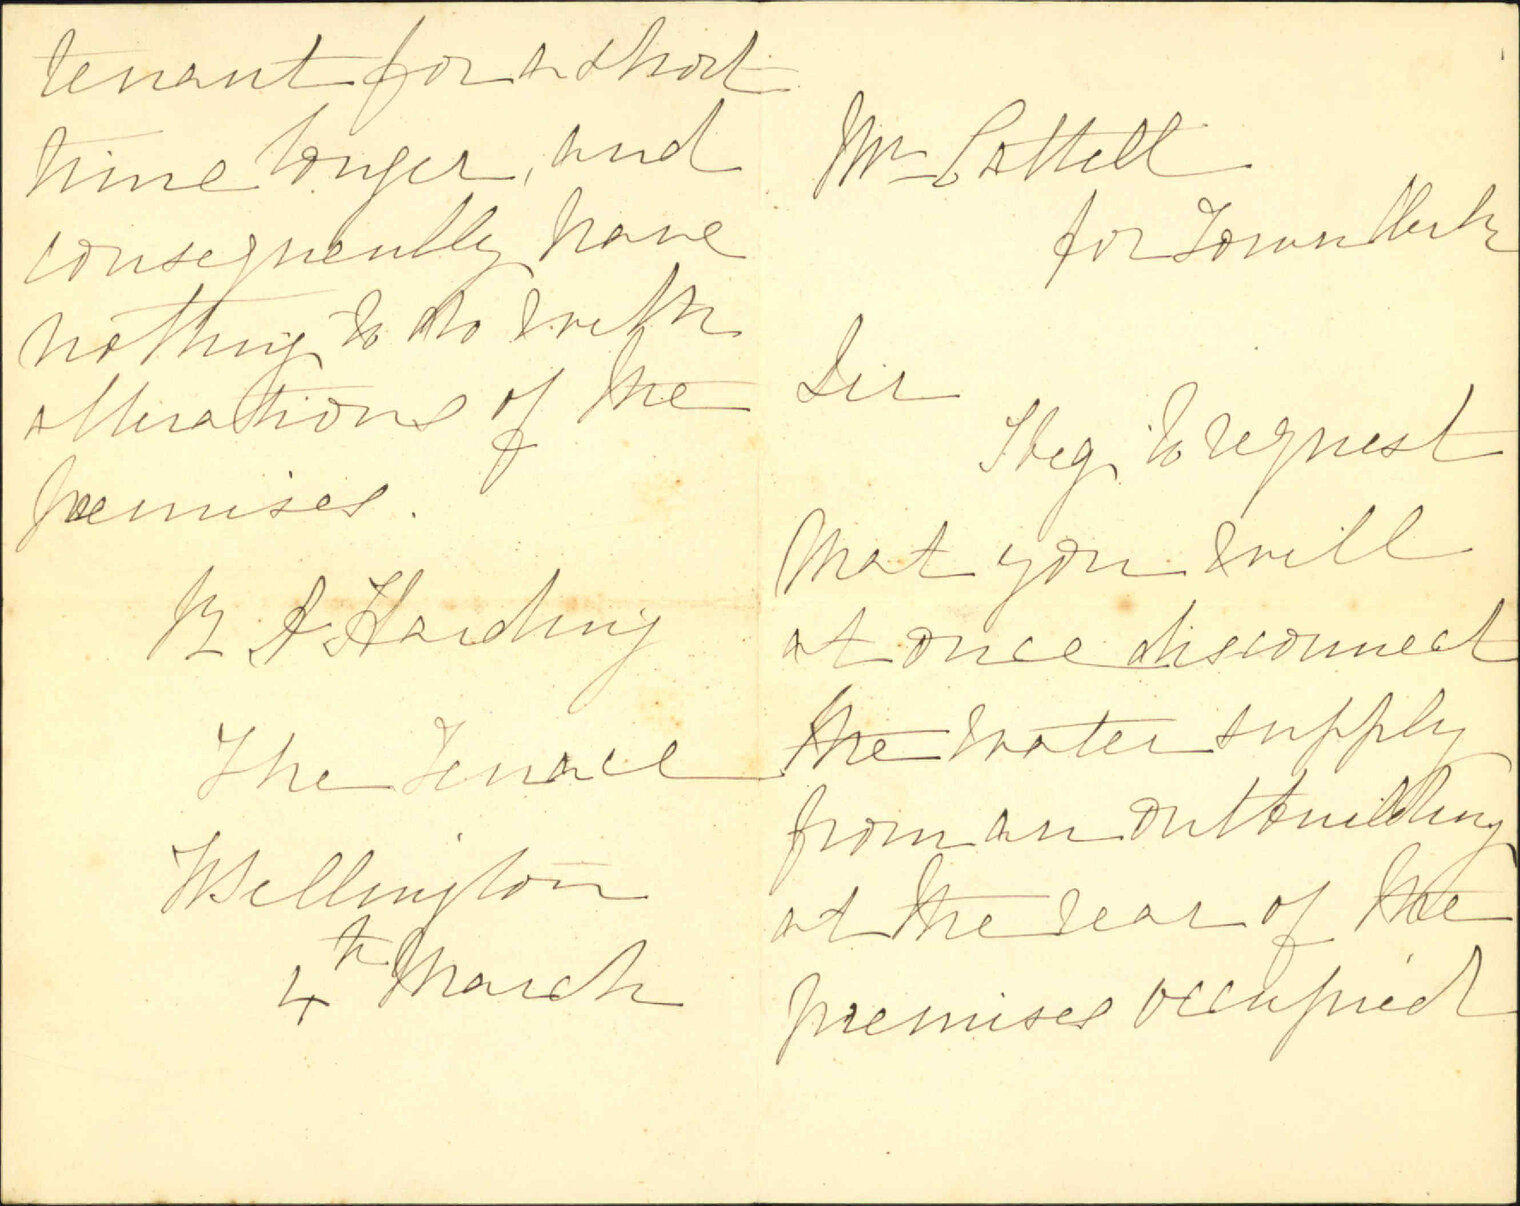 Mr Cattell
for Town Clerk
Sir
I beg to request
that you will
at once disconnect
the water supply
from an outbuilding
at the rear of the
premises occupied
tenant for a short
time longer, and
consequently have
nothing to do with
alterations of the
premises.
Harding
The Terrace
Wellington
4th March